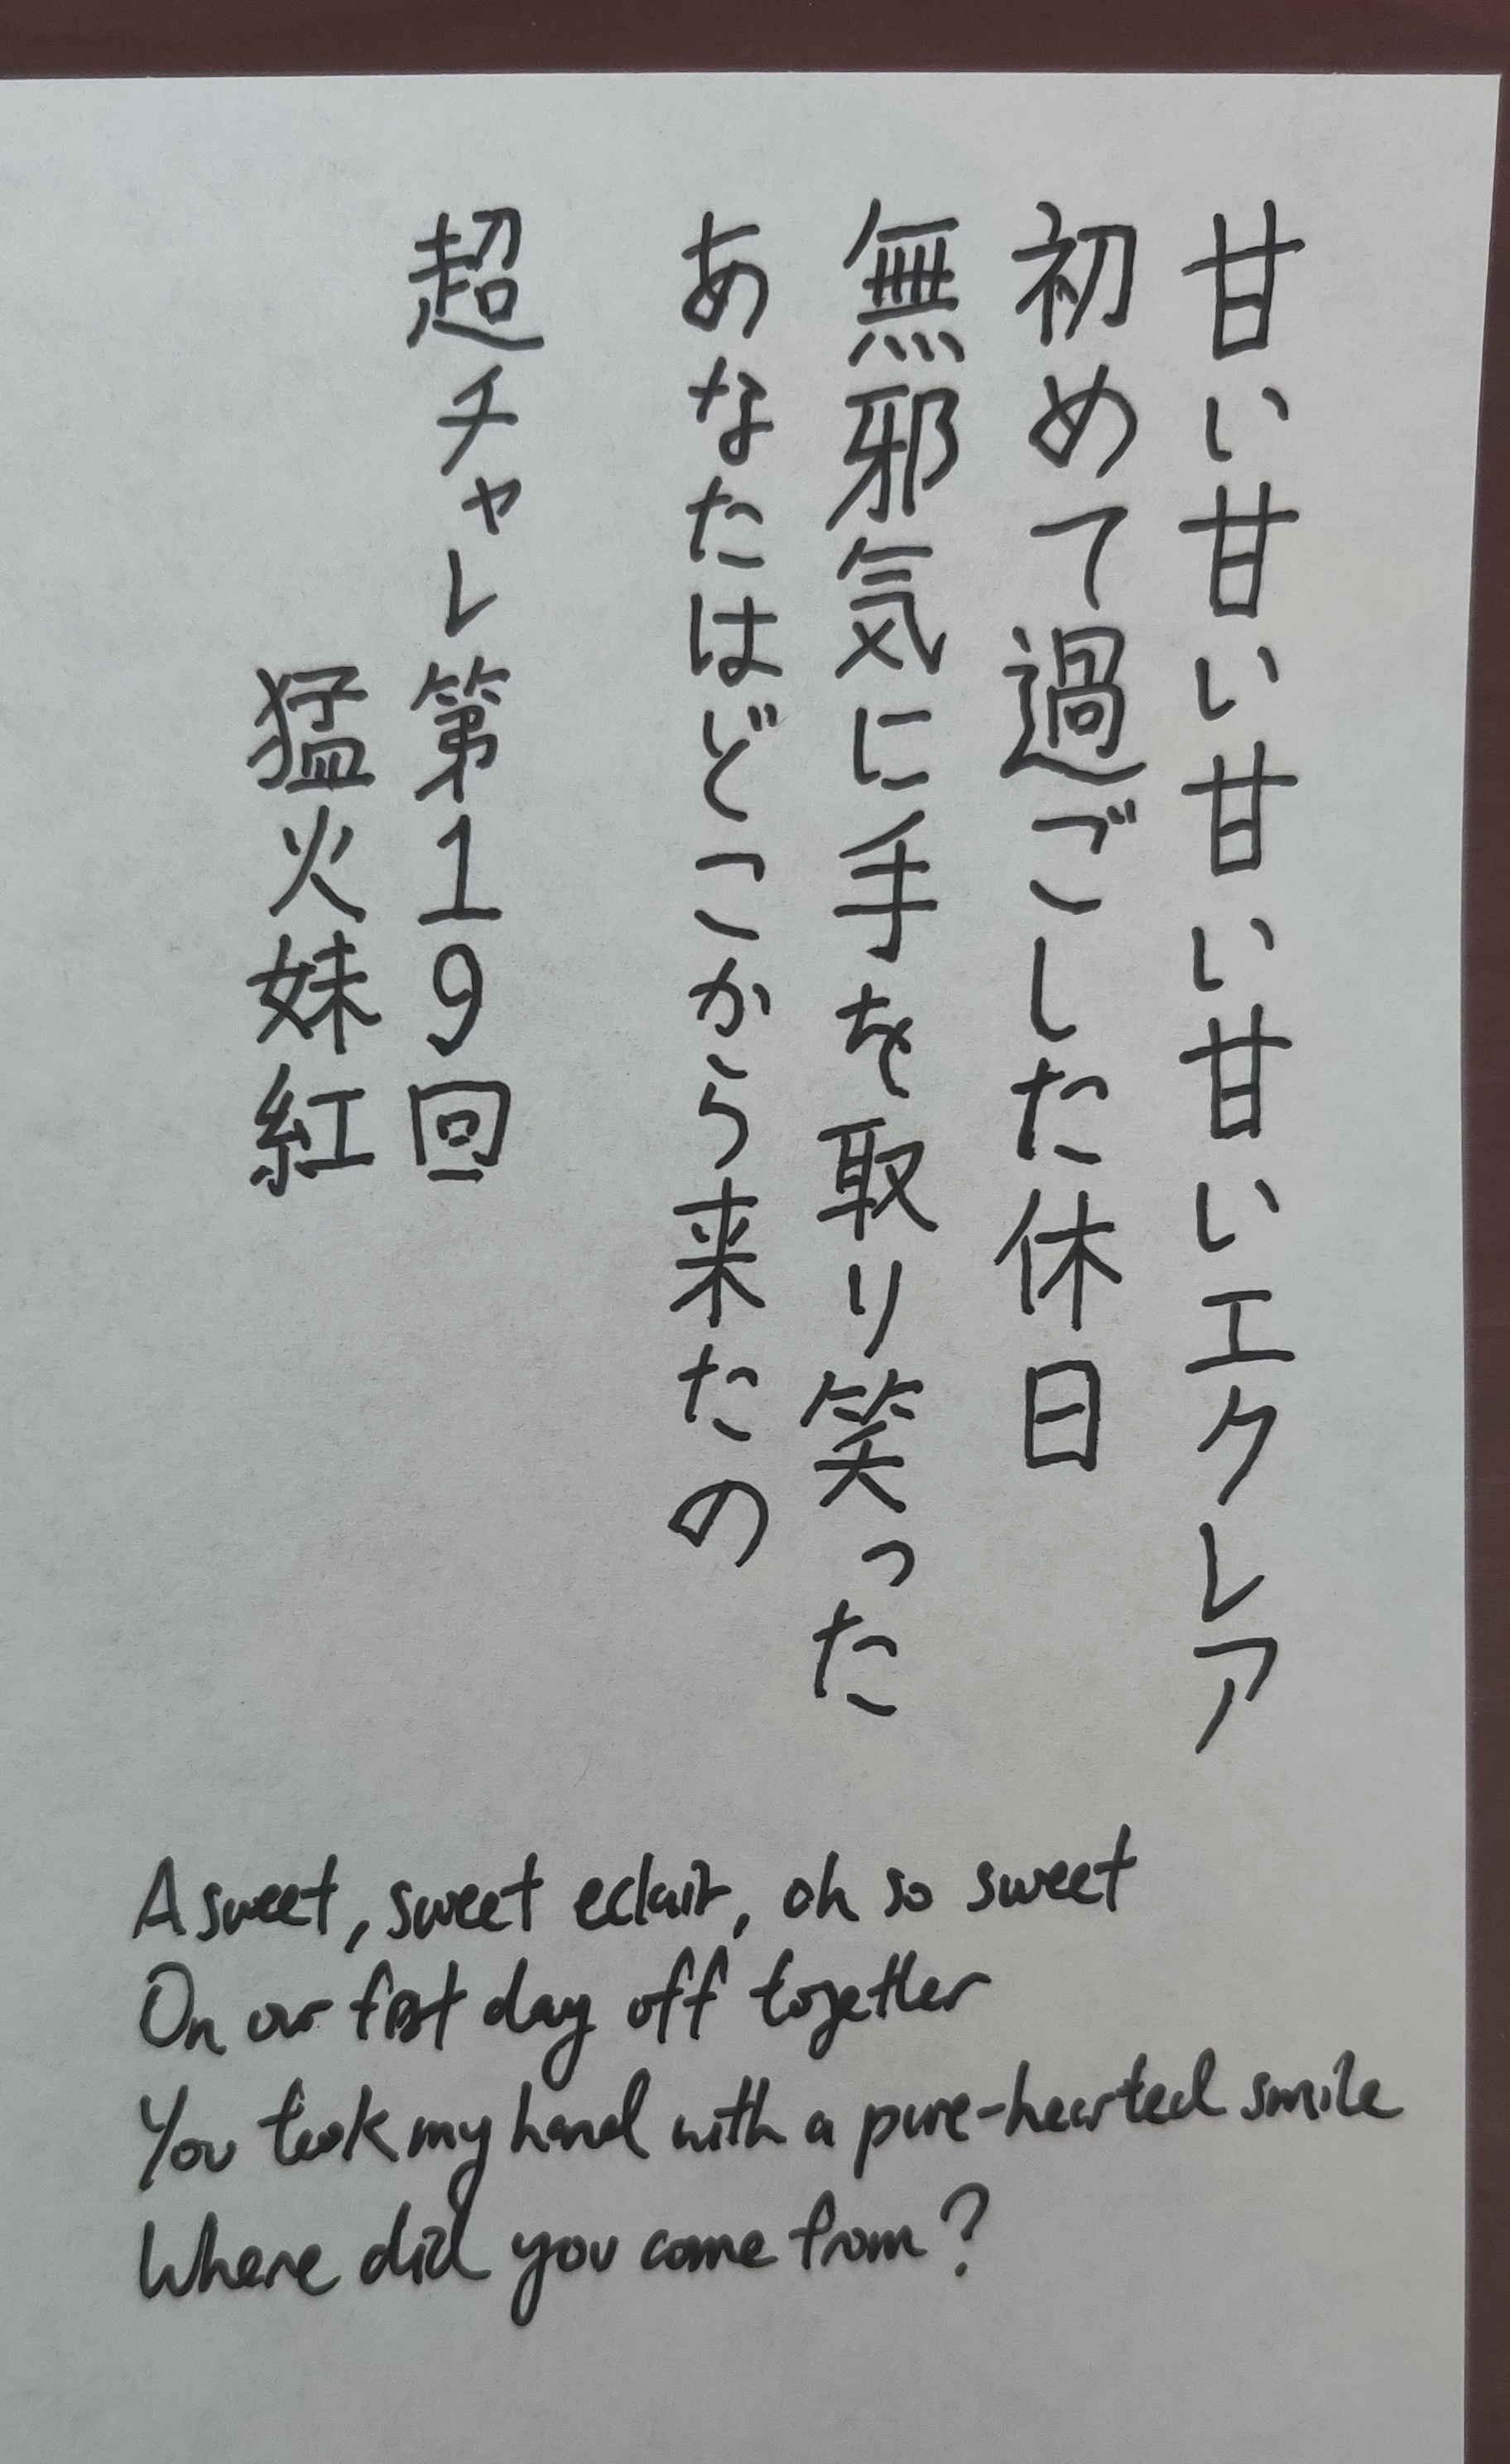 甘い甘い甘い甘いエクレア
初めて過ごした休日
無邪気に手を取り笑った
あなたはどこから来たの
超チャレ第19回
猛火妹紅
A sweet, sweet eclair, oh so sweet
On our first day off together
You took my hand with a pure-hearted smile
Where did you come from?